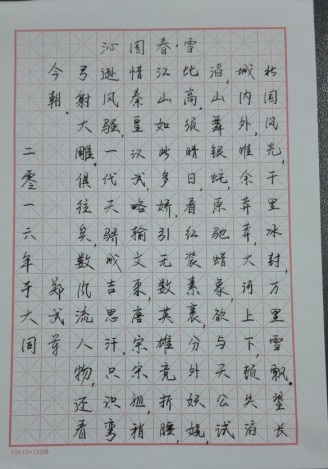 沁园春·雪
北国风光,千里冰封,万里雪飘。望长
城内外,惟余莽莽,大河上下,顿失滔
滔,山舞银蛇,原驰蜡象,欲与天公试
比高。须晴日,看红装素裹,分外妖娆。
江山如此多娇,引无数英雄竞折腰。
惜秦皇汉武,略输文采,唐宗宋祖,稍
逊风骚。一代天骄,成吉思汗,只识弯
弓射大雕。俱往矣,数风流人物,还看
今朝。
郑武
二零一六年于大同
10X15=150格